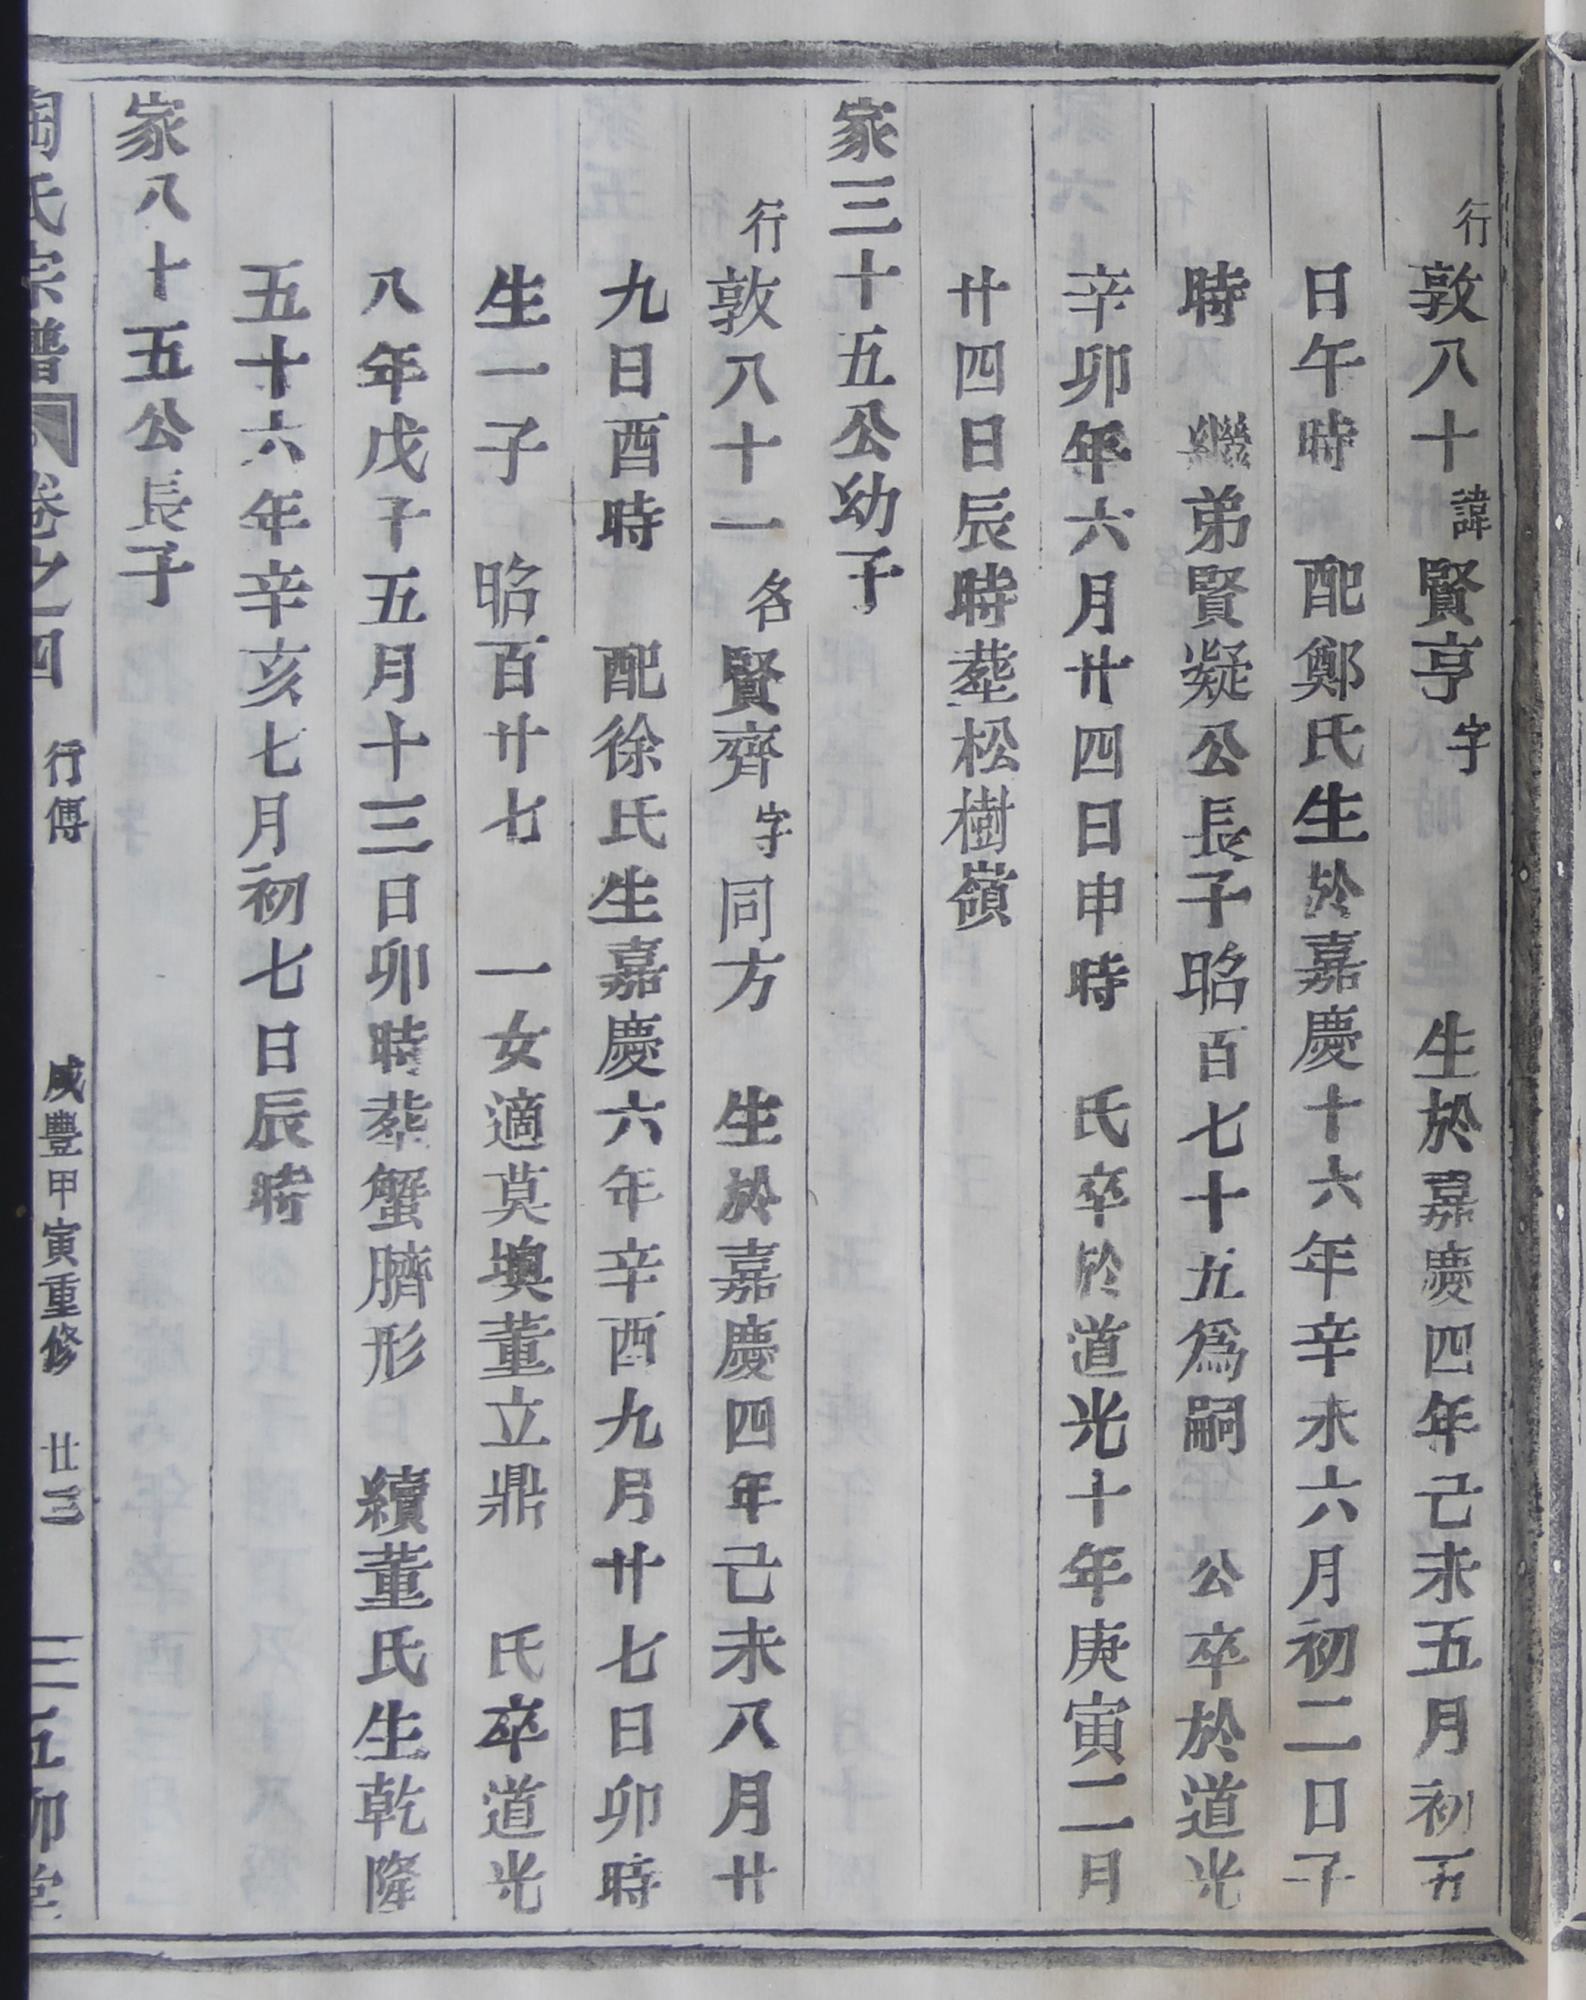 行敦八十諱賢亨字 生於嘉慶四年己未五月初五
日午時 配鄭氏生於嘉慶十六年辛未六月初二日子
時 繼弟賢凝公長子昭百七十五為嗣 公卒於道光
辛卯年六月廿四日申時 氏卒於道光十年庚寅二月
廿四日辰時塟松樹嶺
家三十五公幼子
行敦八十一名賢齊字同方 生於嘉慶四年己未八月廿
九日酉時 配徐氏生嘉慶六年辛酉九月廿七日卯時
生一子 昭百廿七 一女適莫墺董立鼎 氏卒道光
八年戊子五月十三日卯時塟蟹臍形 續董氏生乾隆
五十六年辛亥七月初七日辰時
家八十五公長子
陶氏宗譜 卷之四 行傳 咸豐甲寅重修 廿三 五柳堂